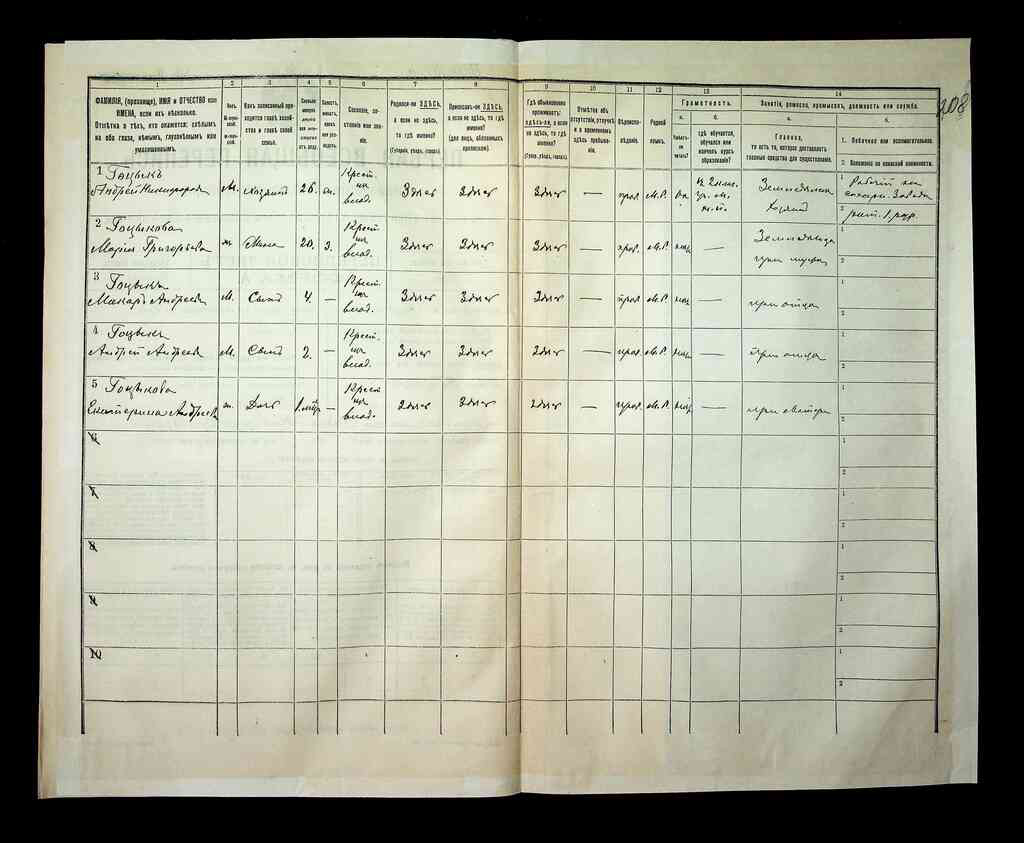 208
1 2 3 4 5 6 7 8 9 10 11 12 13 14
ФАМИЛІЯ, (прозвище), ИМЯ и ОТЧЕСТВО или
ИМЕНА, если ихъ нѣсколько.
Отмѣтка о тѣхъ, кто окажется: слѣпымъ
на оба глаза, нѣмымъ, глухонѣмымъ или
умалишеннымъ.
Полъ.
Какъ записанный при-
ходится главѣ хозяй-
ства и главѣ своей
семьи.
Сколько
минуло
лѣтъ
Холостъ,
женатъ,
вдовъ
или раз-
веденъ.
Сословіе, со-
стояніе или зва-
ніе.
Родился-ли ЗДѢСЬ,
а если не здѣсь,
то гдѣ
именно?
(Губернія, уѣздъ, городъ).
Приписанъ-ли ЗДѢСЬ,
а если не здѣсь, то гдѣ
именно?
(для лицъ, обязанныхъ
припиской).
Гдѣ обыкновенно
проживаетъ:
здѣсь-ли, а если
не здѣсь, то гдѣ
именно?
(Губер., уѣздъ, городъ).
Отмѣтка объ
отсутствіи, отлучкѣ
и о временномъ
здѣсь пребыва-
ніи.
Вѣроиспо-
вѣданіе.
Родной
языкъ.
Грамотность.
а. б.
Умѣетъ-
ли
читать?
гдѣ обучается,
обучался или
кончилъ курсъ
образованія?
Занятія, ремесло, промыселъ, должность или служба.
а. б.
Главное,
то есть то, которое доставляетъ
главныя средства для существованія.
1. Побочное или вспомогательное.
2. Положеніе по воинской повинности.
1 Гоцыкъ
Андрей Никифоровъ М. Хозяинъ 26. ж. Крест. из влад. Здѣсь Здѣсь Здѣсь — прав. М.Р. Земледѣлецъ Хозяинъ
1 Рабочій на сахарн. Заводѣ
2 рат. 1 раз.
2 Гоцыкова
Марія Григорьева ж. Жена 20. З. Крест из влад. Здѣсь Здѣсь Здѣсь — прав. М.Р. — Земледѣлецъ при мужѣ
1
2
3 Гоцыкъ
Макаръ Андреевъ М. Сынъ 4. — Крест. из влад. Здѣсь Здѣсь Здѣсь — прав. М.Р. — при отцѣ
1
2
4 Гоцыкъ
Андрей Андреевъ М. Сынъ 2. — Крест. из влад. Здѣсь Здѣсь Здѣсь — прав. М.Р. — при отцѣ
1
2
5 Гоцыкова
Екатерина Андреева ж. Дочь — Крест из влад. Здѣсь Здѣсь Здѣсь — прав. М.Р. — при матери
1
2
6
1
2
7
1
2
8
1
2
9
1
2
10
1
2